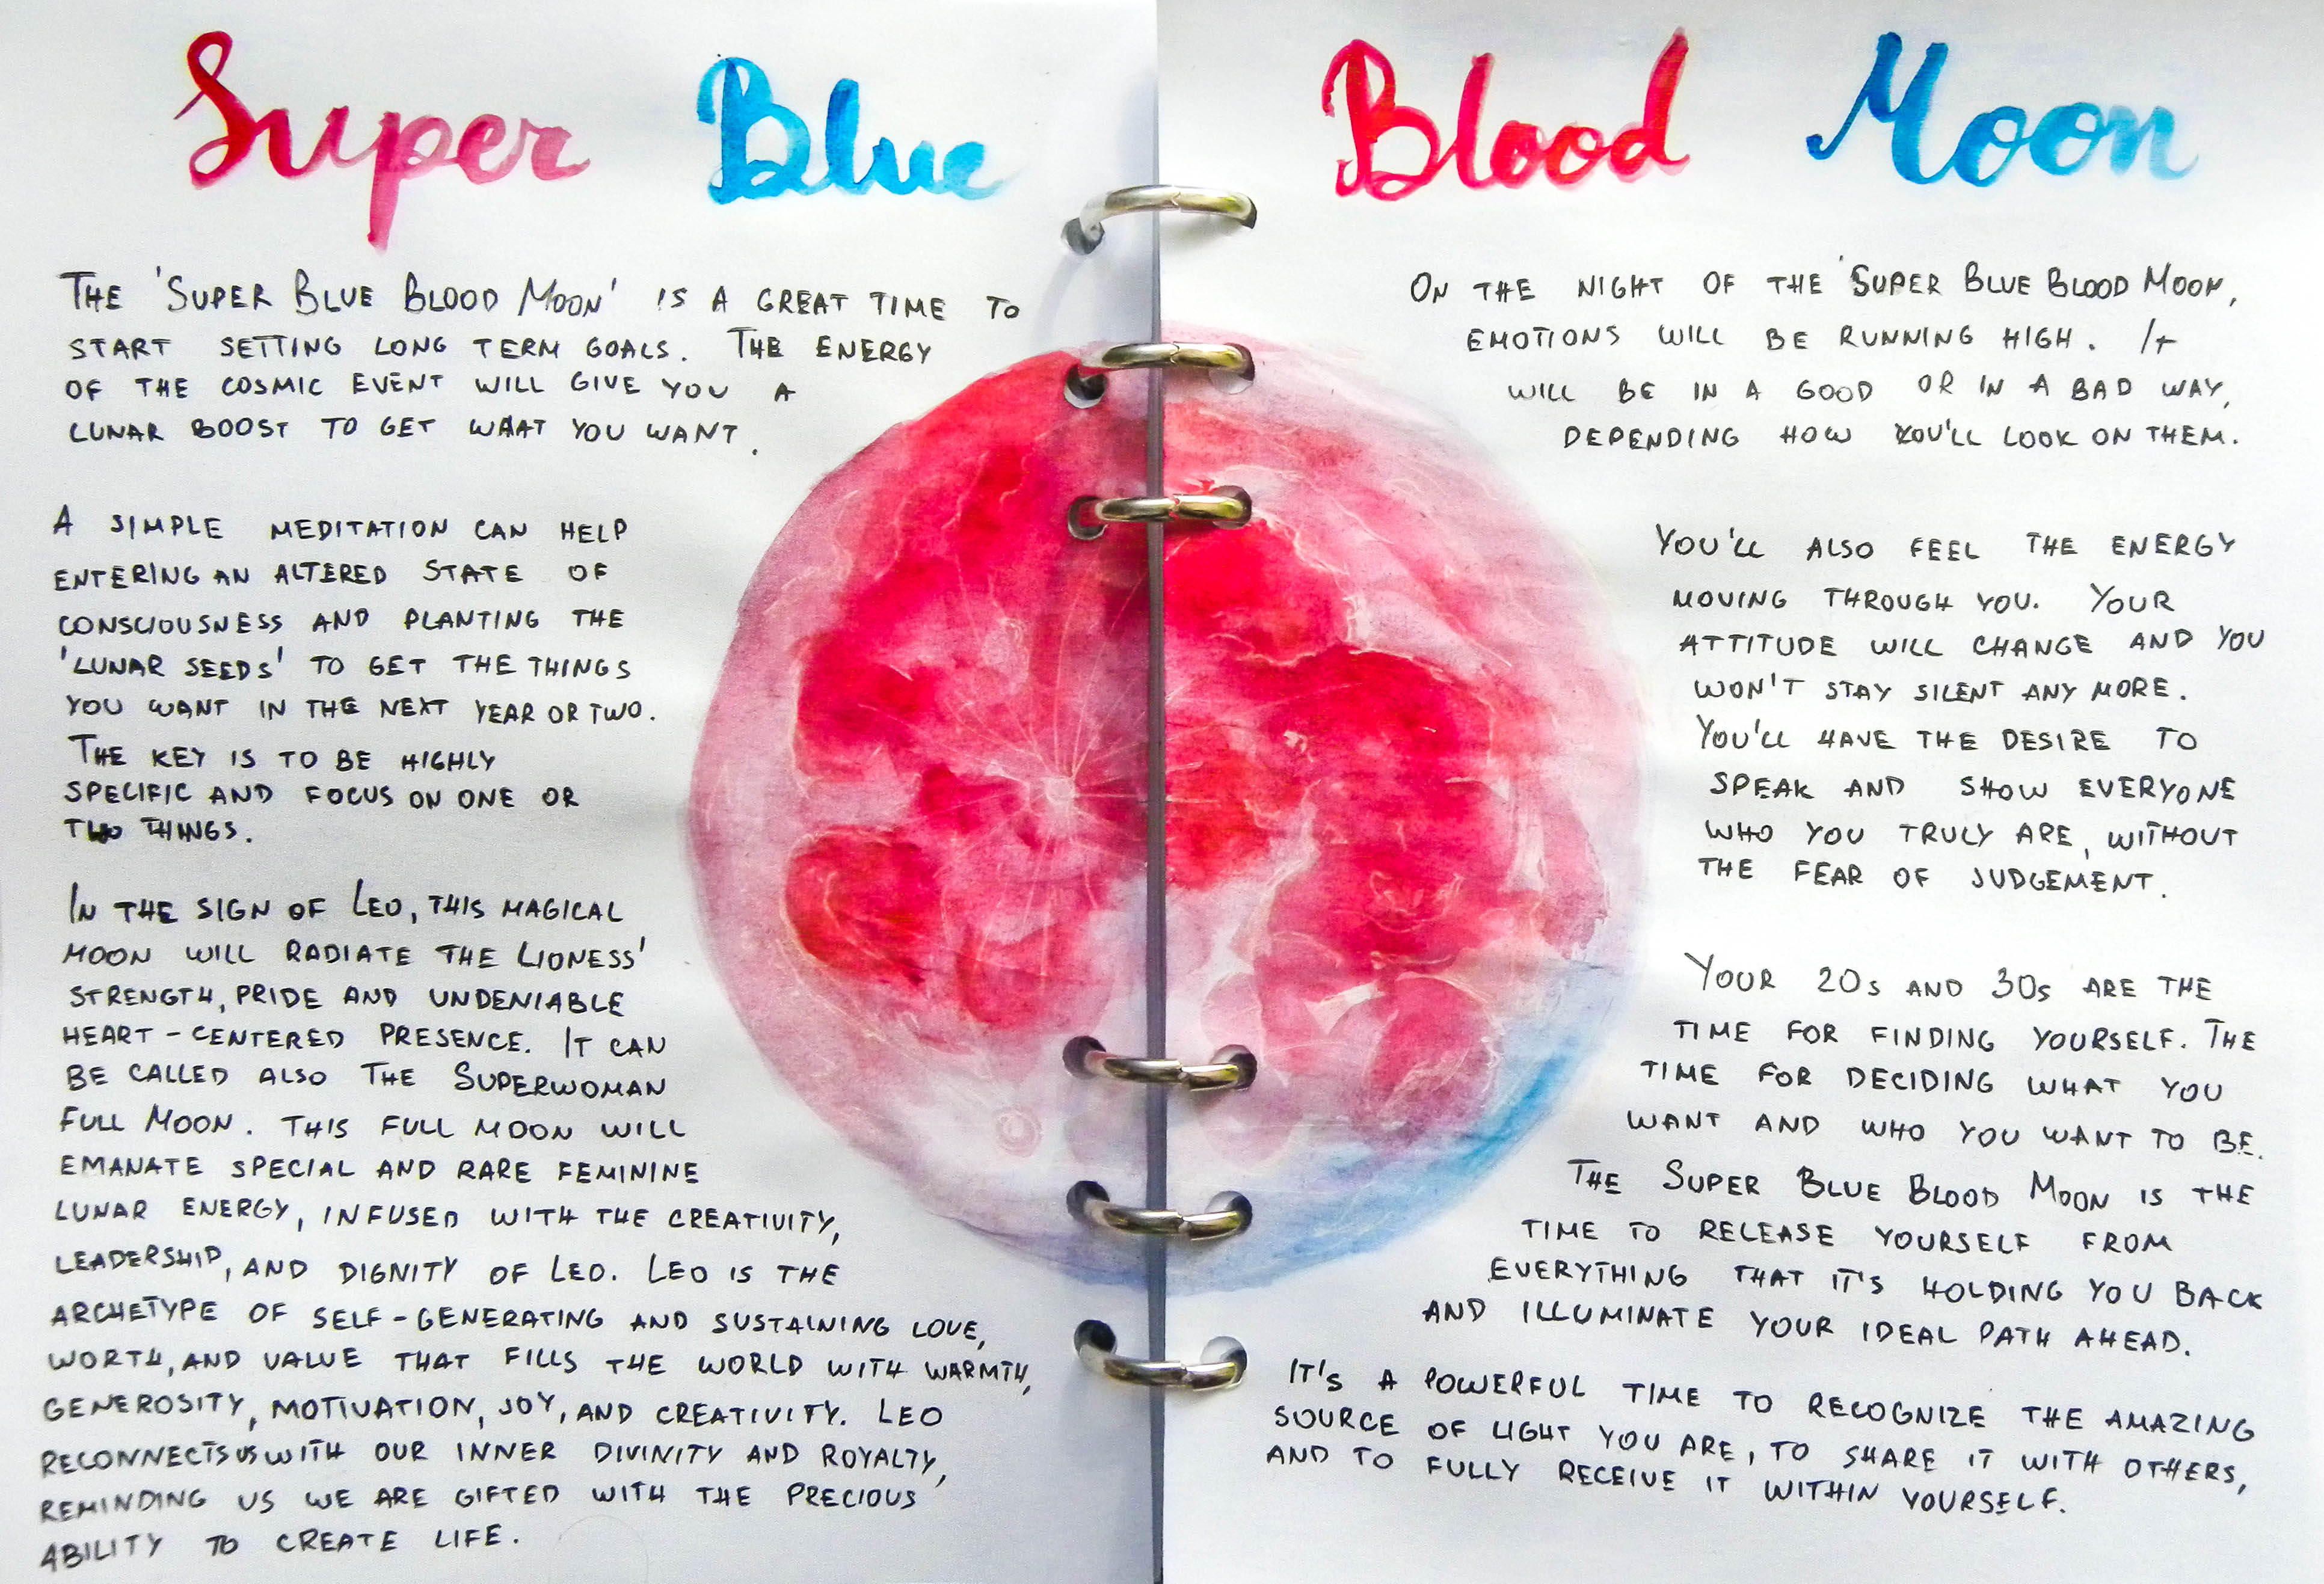 Super Blue Blood Moon
THE 'SUPER BLUE BLOOD MOON' IS A GREAT TIME TO
START SETTING LONG TERM GOALS. THE ENERGY
OF THE COSMIC EVENT WILL GIVE YOU A
LUNAR BOOST TO GET WHAT YOU WANT.
A SIMPLE MEDITATION CAN HELP
ENTERING AN ALTERED STATE OF
CONSCIOUSNESS AND PLANTING THE
'LUNAR SEEDS' TO GET THE THINGS
YOU WANT IN THE NEXT YEAR OR TWO.
THE KEY IS TO BE HIGHLY
SPECIFIC AND FOCUS ON ONE OR
TWO THINGS.
IN THE SIGN OF LEO, THIS MAGICAL
MOON WILL RADIATE THE LIONESS'
STRENGTH, PRIDE AND UNDENIABLE
HEART-CENTERED PRESENCE. IT CAN
BE CALLED ALSO THE SUPERWOMAN
FULL MOON. THIS FULL MOON WILL
EMANATE SPECIAL AND RARE FEMININE
LUNAR ENERGY, INFUSED WITH THE CREATIVITY,
LEADERSHIP, AND DIGNITY OF LEO. LEO IS THE
ARCHETYPE OF SELF-GENERATING AND SUSTAINING LOVE,
WORTH, AND VALUE THAT FILLS THE WORLD WITH WARMTH,
GENEROSITY, MOTIVATION, JOY, AND CREATIVITY. LEO
RECONNECTS US WITH OUR INNER DIVINITY AND ROYALTY,
REMINDING US WE ARE GIFTED WITH THE PRECIOUS
ABILITY TO CREATE LIFE.
ON THE NIGHT OF THE 'SUPER BLUE BLOOD MOON,
EMOTIONS WILL BE RUNNING HIGH. It
WILL BE IN A GOOD OR IN A BAD WAY,
DEPENDING HOW YOU'LL LOOK ON THEM.
YOU'LL ALSO FEEL THE ENERGY
MOVING THROUGH YOU. YOUR
ATTITUDE WILL CHANGE AND YOU
WON'T STAY SILENT ANY MORE.
YOU'LL HAVE THE DESIRE TO
SPEAK AND SHOW EVERYONE
WHO YOU TRULY ARE, WITHOUT
THE FEAR OF JUDGEMENT.
YOUR 20s AND 30s ARE THE
TIME FOR FINDING YOURSELF. THE
TIME FOR DECIDING WHAT YOU
WANT AND WHO YOU WANT TO BE.
THE SUPER BLUE BLOOD MOON IS THE
TIME TO RELEASE YOURSELF FROM
EVERYTHING THAT IT'S HOLDING YOU BACK
AND ILLUMINATE YOUR IDEAL PATH AHEAD.
IT'S A POWERFUL TIME TO RECOGNIZE THE AMAZING
SOURCE OF LIGHT YOU ARE, TO SHARE IT WITH OTHERS,
AND TO FULLY RECEIVE IT WITHIN YOURSELF.